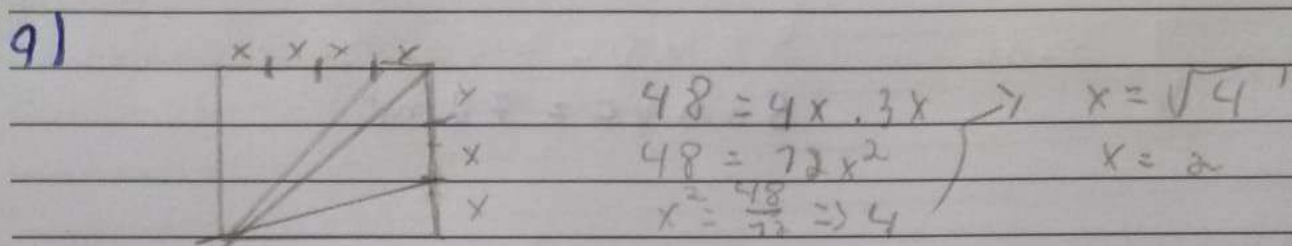 9)
x x x x
x
x
x
48 = 4x . 3x
48 = 12x²
x² = 48/12 => 4
x = √4
x = 2